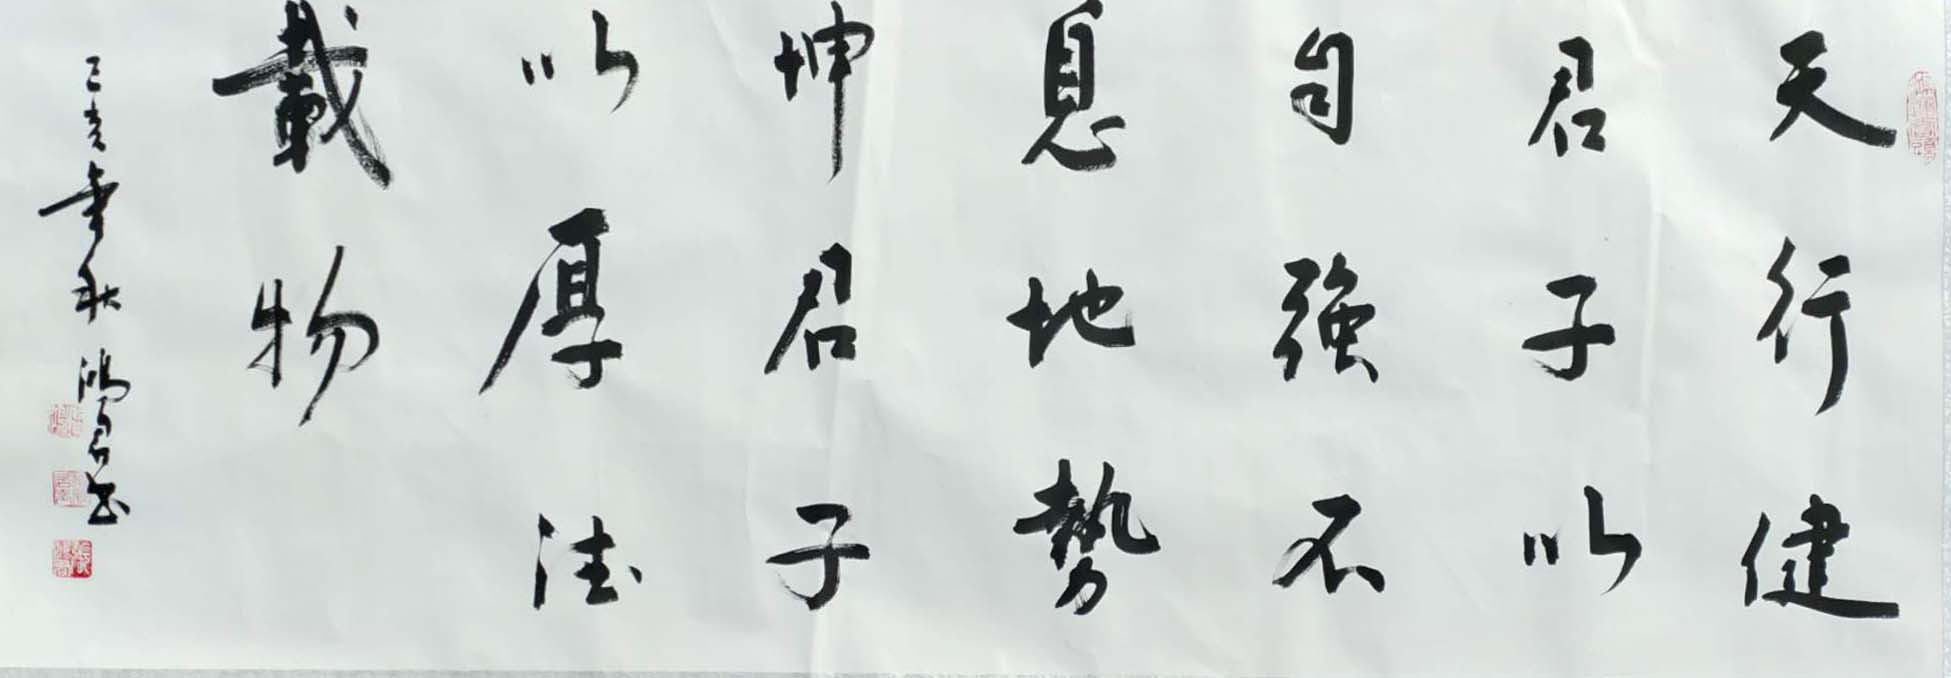 天行健
君子以
自強不
息地勢
坤君子
以厚德
載物
己亥年秋鴻君书